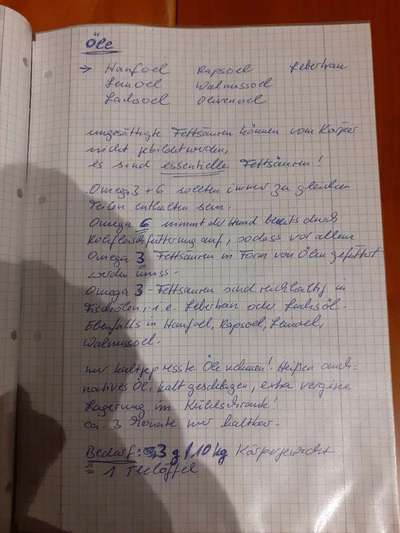 Öle
→ Hanfoel Rapsoel Lebertran
Leinoel Walnussoel
Lachsoel Olivenoel
ungesättigte Fettsäuren können vom Körper
nicht gebildet werden,
es sind essentielle Fettsäuren!
Omega 3 + 6 sollten immer zu gleichen
Teilen enthalten sein.
Omega 6 nimmt der Hund bereits durch
Rohfleischfütterung auf, sodass vor allem
Omega 3 Fettsäuren in Form von Ölen gefüttert
werden muss.
Omega 3 - Fettsäuren sind reichhaltig in
Fischölen, i.e. Lebertran oder Lachsöl.
Ebenfalls in Hanfoel, Rapsoel, Leinoel,
Walnussoel.
nur kaltgepresste Öle nehmen! Heißen auch
natives Öl, kalt geschlagen, extra vergine
Lagerung im Kühlschrank!
ca. 3 Monate nur haltbar.
Bedarf: 3 g / 10 kg Körpergewicht
= 1 Teelöffel